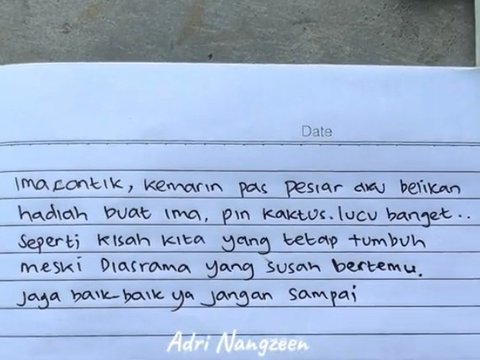 Date
Ima cantik, kemarin pas pesiar aku belikan
hadiah buat ima, pin kaktus. lucu banget..
seperti kisah kita yang tetap tumbuh
meski Diasrama yang susah bertemu.
jaga baik-baik ya jangan sampai
Adri Nangzeen